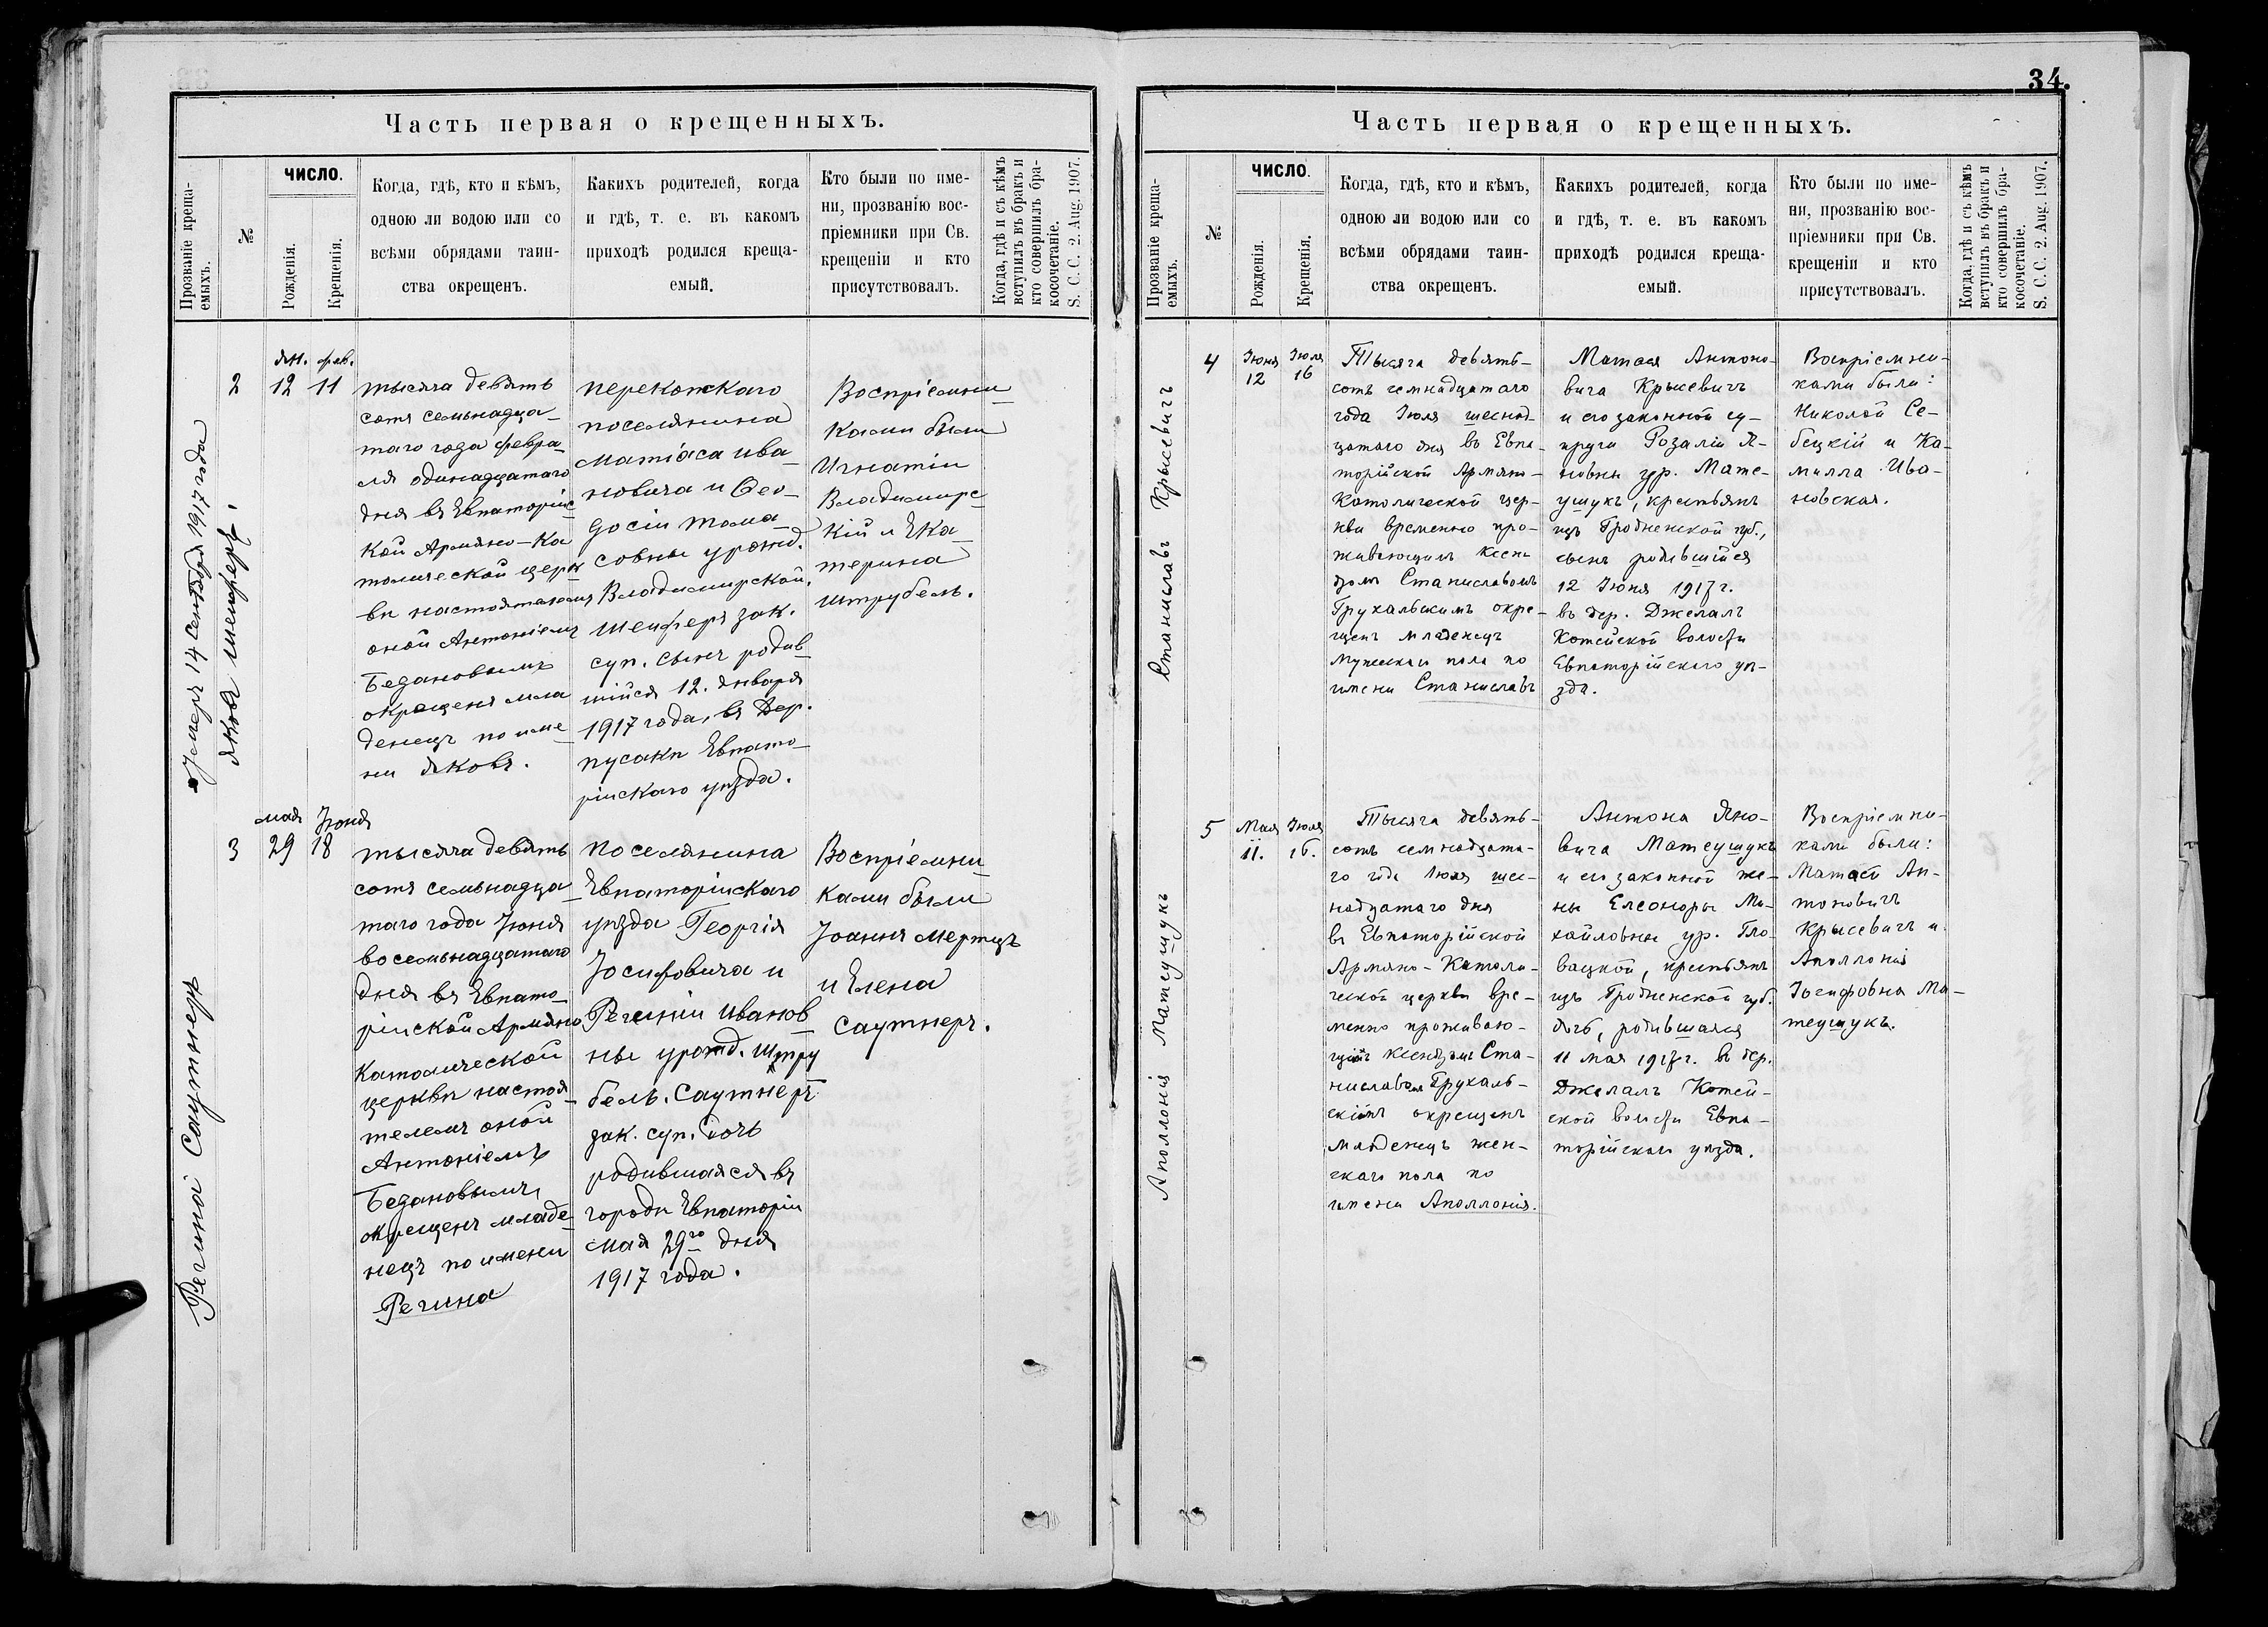 34.
Часть первая о крещенныхъ.
Прозваніе креща-
емыхъ.
№
ЧИСЛО.
Рожденія.
Крещенія.
Когда, гдѣ, кто и кѣмъ,
одною ли водою или со
всѣми обрядами таин-
ства окрещенъ.
Какихъ родителей, когда
и гдѣ, т. е. въ какомъ
приходѣ родился креща-
емый.
Кто были по име-
ни, прозванію вос-
пріемники при Св.
крещеніи и кто
присутствовалъ.
Когда, гдѣ и съ кѣмъ
вступилъ въ бракъ и
кто совершилъ бра-
косочетаніе.
S. C. C. 2. Aug. 1907.
Умеръ 14 Сентября 1917 года
Яковъ Шеиферъ.
2
Ян. фев.
12 11
тысяча девять
сотъ семьнадца-
таго года февра-
ля одинадцатаго
дня въ Евпаторійс
кой Армяно-Ка
толической церк
ви настоятелемъ
оной Антоніемъ
Бедановымъ
окрещенъ мла
денецъ по име-
ни Яковъ.
перекопскаго
поселянина
Матіаса ива-
новича и Ѳео-
досіи Тома-
совны урожд.
Владимирской,
Шеиферъ зак.
суп. сынъ родив-
шійся 12. Января
1917 года, въ Дер.
пусакъ Евпато-
рійскаго уѣзда.
Воспріемни
ками были
Игнатіи
Владимирс
кій и Ека-
терина
Штрубель.
Регина Саутнеръ
3
мая Іюня
29 18
тысяча девять
сотъ семьнадца-
таго года Іюня
восемьнадцатаго
дня въ Евпато-
рійской Армяно
Католической
церкви настоя-
телемъ оной
Антоніемъ
Бедановымъ
окрещенъ младе-
нецъ по имени
Регина
поселянина
Евпаторійскаго
уѣзда Георгія
Іосифовича и
Регины Иванов-
ны урожд. Штру
бель. Саутнеръ
зак. суп. дочь
родившаяся въ
городѣ Евпаторіи
мая 29го дня
1917 года.
Воспріемни-
ками были
Іоаннъ Мертцъ
и Елена
Саутнеръ.
Часть первая о крещенныхъ.
Прозваніе креща-
емыхъ.
№
ЧИСЛО.
Рожденія.
Крещенія.
Когда, гдѣ, кто и кѣмъ,
одною ли водою или со
всѣми обрядами таин-
ства окрещенъ.
Какихъ родителей, когда
и гдѣ, т. е. въ какомъ
приходѣ родился креща-
емый.
Кто были по име-
ни, прозванію вос-
пріемники при Св.
крещеніи и кто
присутствовалъ.
Когда, гдѣ и съ кѣмъ
вступилъ въ бракъ и
кто совершилъ бра-
косочетаніе.
S. C. C. 2. Aug. 1907.
Станиславъ Крысевичъ
4
Іюня Іюля
12 16
Тысяча девять-
сотъ семнадцатаго
года Іюля шеснад-
цатаго дня въ Евпа-
торійской Армяно-
Католической цер-
кви временно про-
живающимъ ксен-
дзомъ Станиславомъ
Грухальскимъ окре-
щенъ младенецъ
мужескаго пола по
имени Станиславъ
Матвея Антоно-
вича Крысевичъ
и его законной су-
пруги Розаліи Я-
новны ур. Мате-
ушукъ, крестьянъ
изъ Гродненской губ.,
сынъ родившійся
12 Іюня 1917 г.
въ дер. Джелалъ
Котейской волости
Евпаторійскаго уѣ-
зда.
Воспріемни-
ками были:
Николай Се-
бецкій и Ка-
милла Ива-
новская.
Аполлонія Матеушукъ
5
Мая Іюля
11. 16.
Тысяча девять-
сотъ семнадцата-
го года Іюля шес-
надцатаго дня
въ Евпаторійской
Армяно-Католи-
ческой церкви вре-
менно проживаю-
щимъ ксендзомъ Ста-
ниславомъ Грухаль-
скимъ окрещенъ
младенецъ жен-
скаго пола по
имени Аполлонія.
Антона Яно-
вича Матеушукъ
и его законной же-
ны Елеоноры Ми-
хайловны ур. Гло-
вацкой, крестьянъ
изъ Гродненской губ.
дочь, родившаяся
11 мая 1917 г. въ дер.
Джелалъ Котей-
ской волости Евпа-
торійскаго уѣзда.
Воспріемни-
ками были:
Матвей Ан-
тоновичъ
Крысевичъ и
Аполлонія
Іосифовна Ма-
теушукъ.